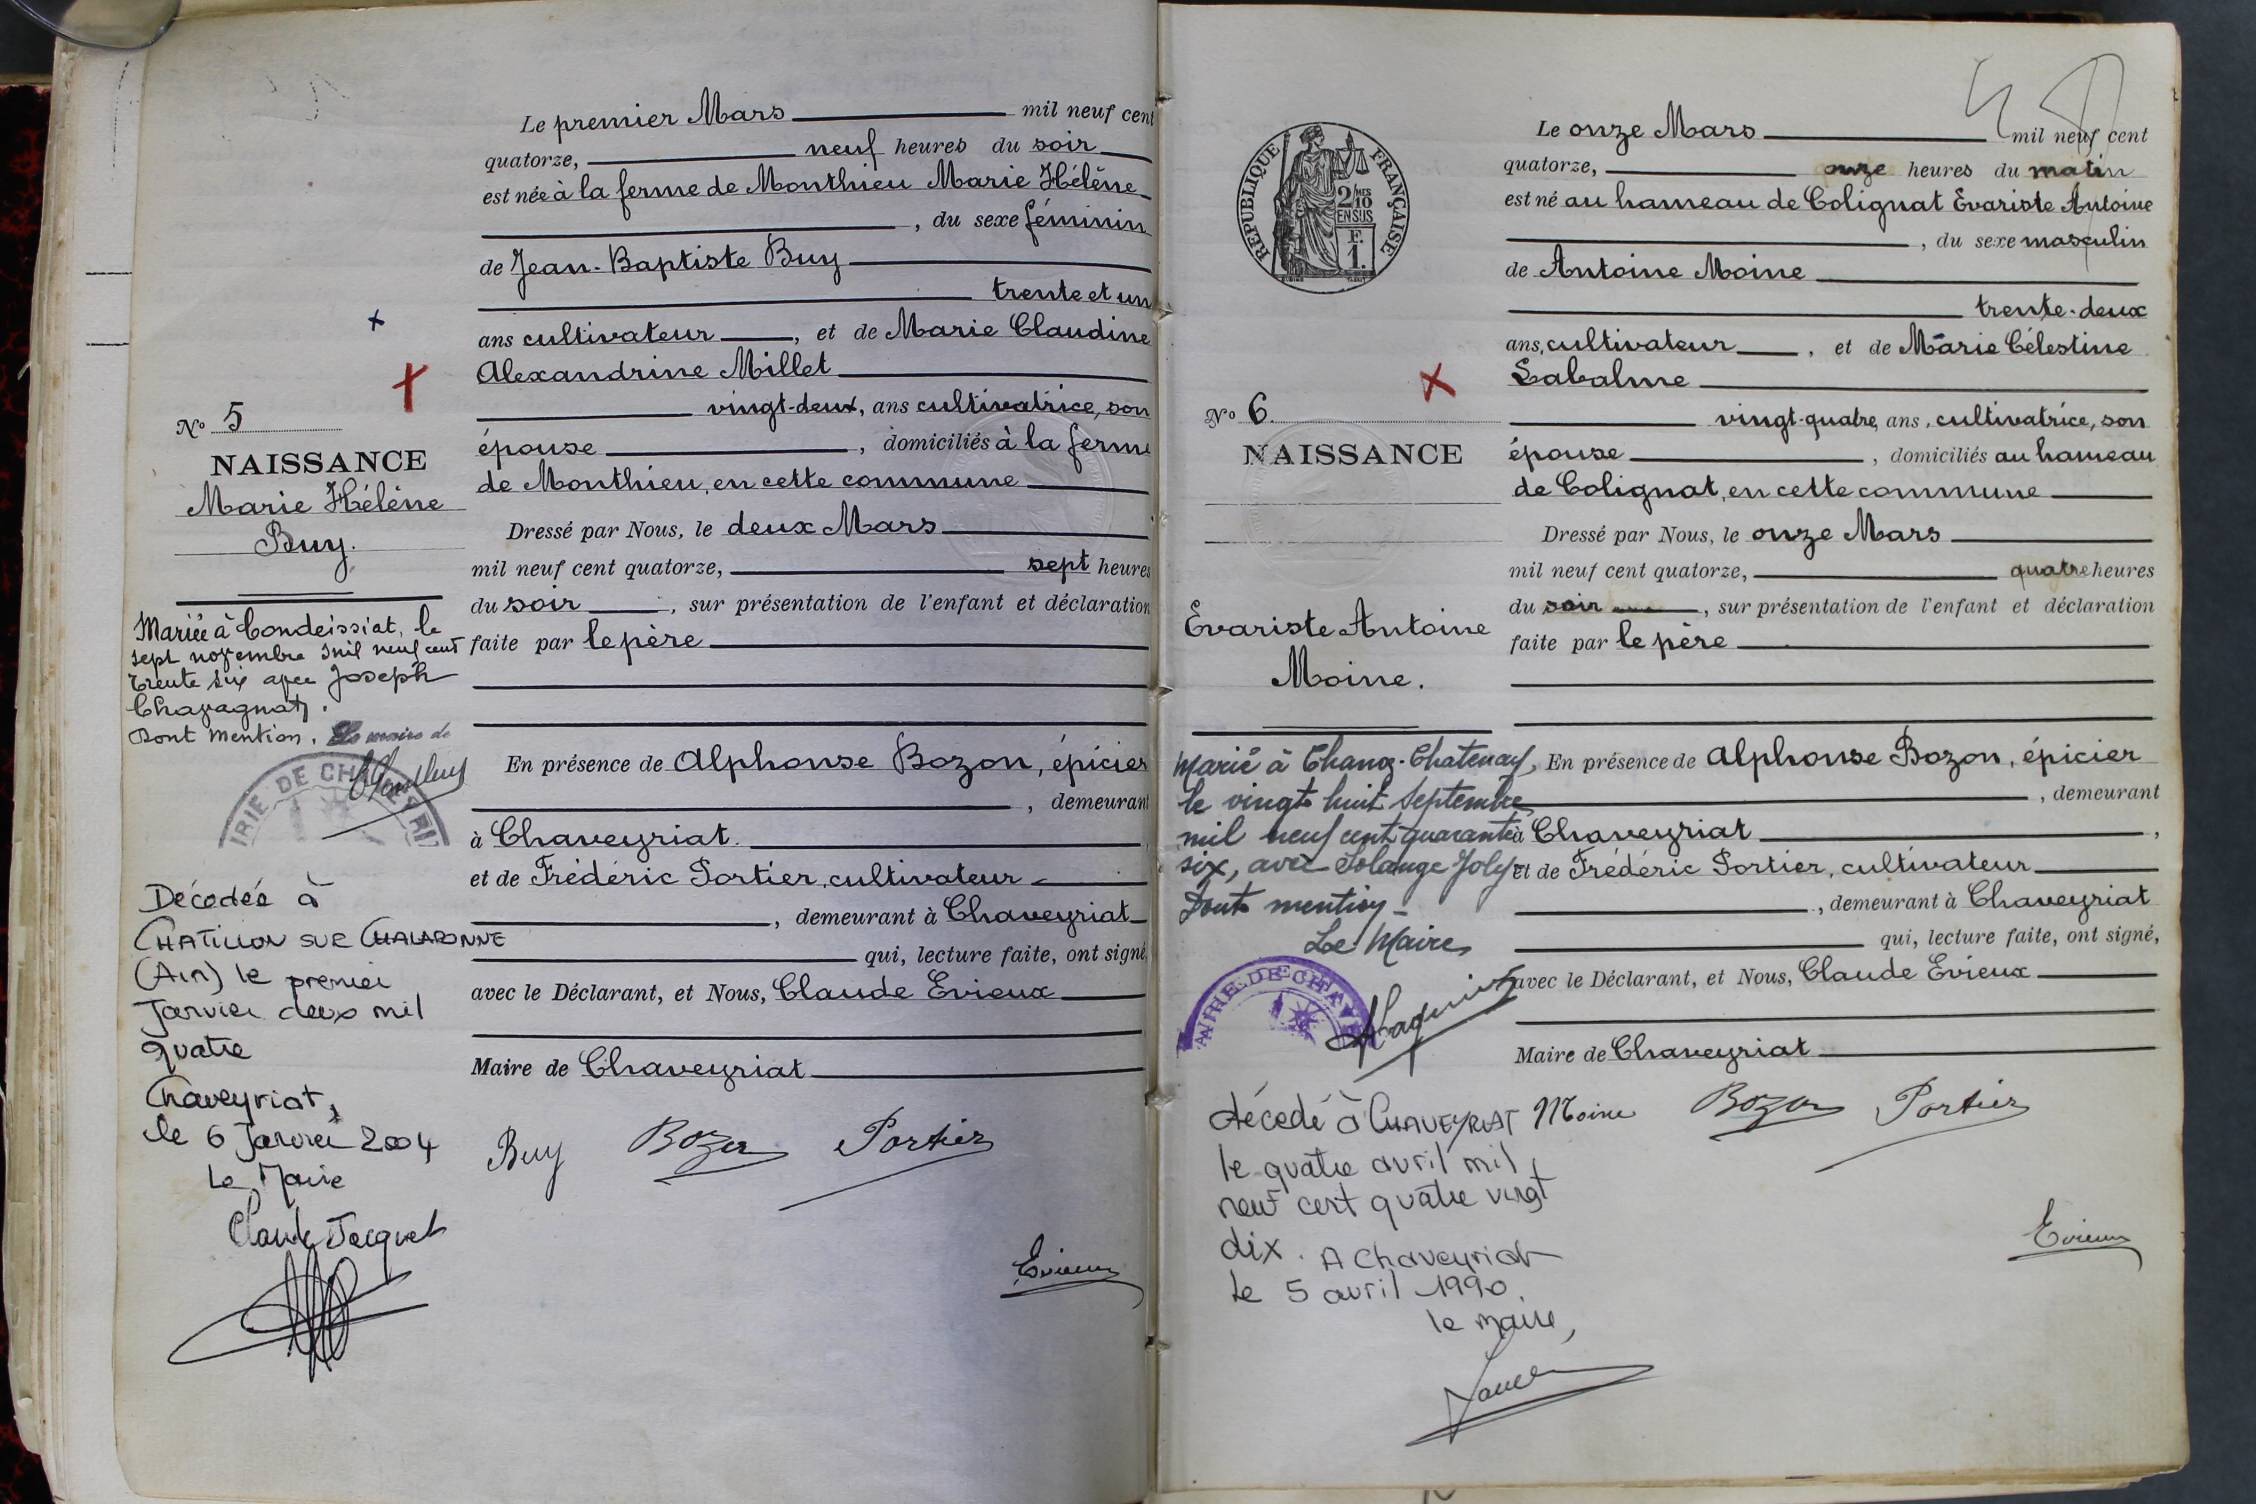 Le premier Mars mil neuf cent
quatorze, neuf heures du soir
est née à la ferme de Monthieu Marie Hélène
, du sexe féminin
de Jean-Baptiste Buy
trente et un
ans cultivateur , et de Marie Claudine
Alexandrine Millet
vingt-deux, ans cultivatrice, son
épouse , domiciliés à la ferme
de Monthieu, en cette commune
Dressé par Nous, le deux Mars
mil neuf cent quatorze, sept heures
du soir , sur présentation de l'enfant et déclaration
faite par le père
En présence de Alphonse Bozon, épicier
, demeurant
à Chaveyriat.
et de Frédéric Portier, cultivateur
, demeurant à Chaveyriat
qui, lecture faite, ont signé,
avec le Déclarant, et Nous, Claude Evieux
Maire de Chaveyriat
Buy Bozon Portier
Evieux
No 5
NAISSANCE
Marie Hélène
Buy.
Mariée à Condeissiat, le
sept novembre mil neuf cent
trente six avec Joseph
Chavagnat.
Dont mention. Le maire de
IRIE DE CH
Décédée à
CHATILLON SUR CHALARONNE
(Ain) le premier
Janvier deux mil
quatre
Chaveyriat,
le 6 Janvier 2004
Le Maire
Claude Jacquet
Le onze Mars mil neuf cent
quatorze, onze heures du matin
est né au hameau de Colignat Evariste Antoine
, du sexe masculin
de Antoine Moine
trente-deux
ans, cultivateur , et de Marie Célestine
Labalme
vingt-quatre ans, cultivatrice, son
épouse , domiciliés au hameau
de Colignat, en cette commune
Dressé par Nous, le onze Mars
mil neuf cent quatorze, quatre heures
du soir , sur présentation de l'enfant et déclaration
faite par le père
En présence de Alphonse Bozon, épicier
, demeurant
à Chaveyriat ,
et de Frédéric Portier, cultivateur
, demeurant à Chaveyriat
qui, lecture faite, ont signé,
avec le Déclarant, et Nous, Claude Evieux
Maire de Chaveyriat
Moine Bozon Portier
Evieux
RÉPUBLIQUE FRANÇAISE
2/MES
10
EN SUS
F.
1.
No 6.
NAISSANCE
Evariste Antoine
Moine.
Marié à Chanoz-Chatenay,
le vingt huit Septembre
mil neuf cent quarante
six, avec Solange Joly
Dont mention
Le Maire,
AIRIE DE CHAVE
décédé à CHAVEYRIAT
le quatre avril mil
neuf cent quatre vingt
dix. A Chaveyriat
le 5 avril 1990.
le maire,